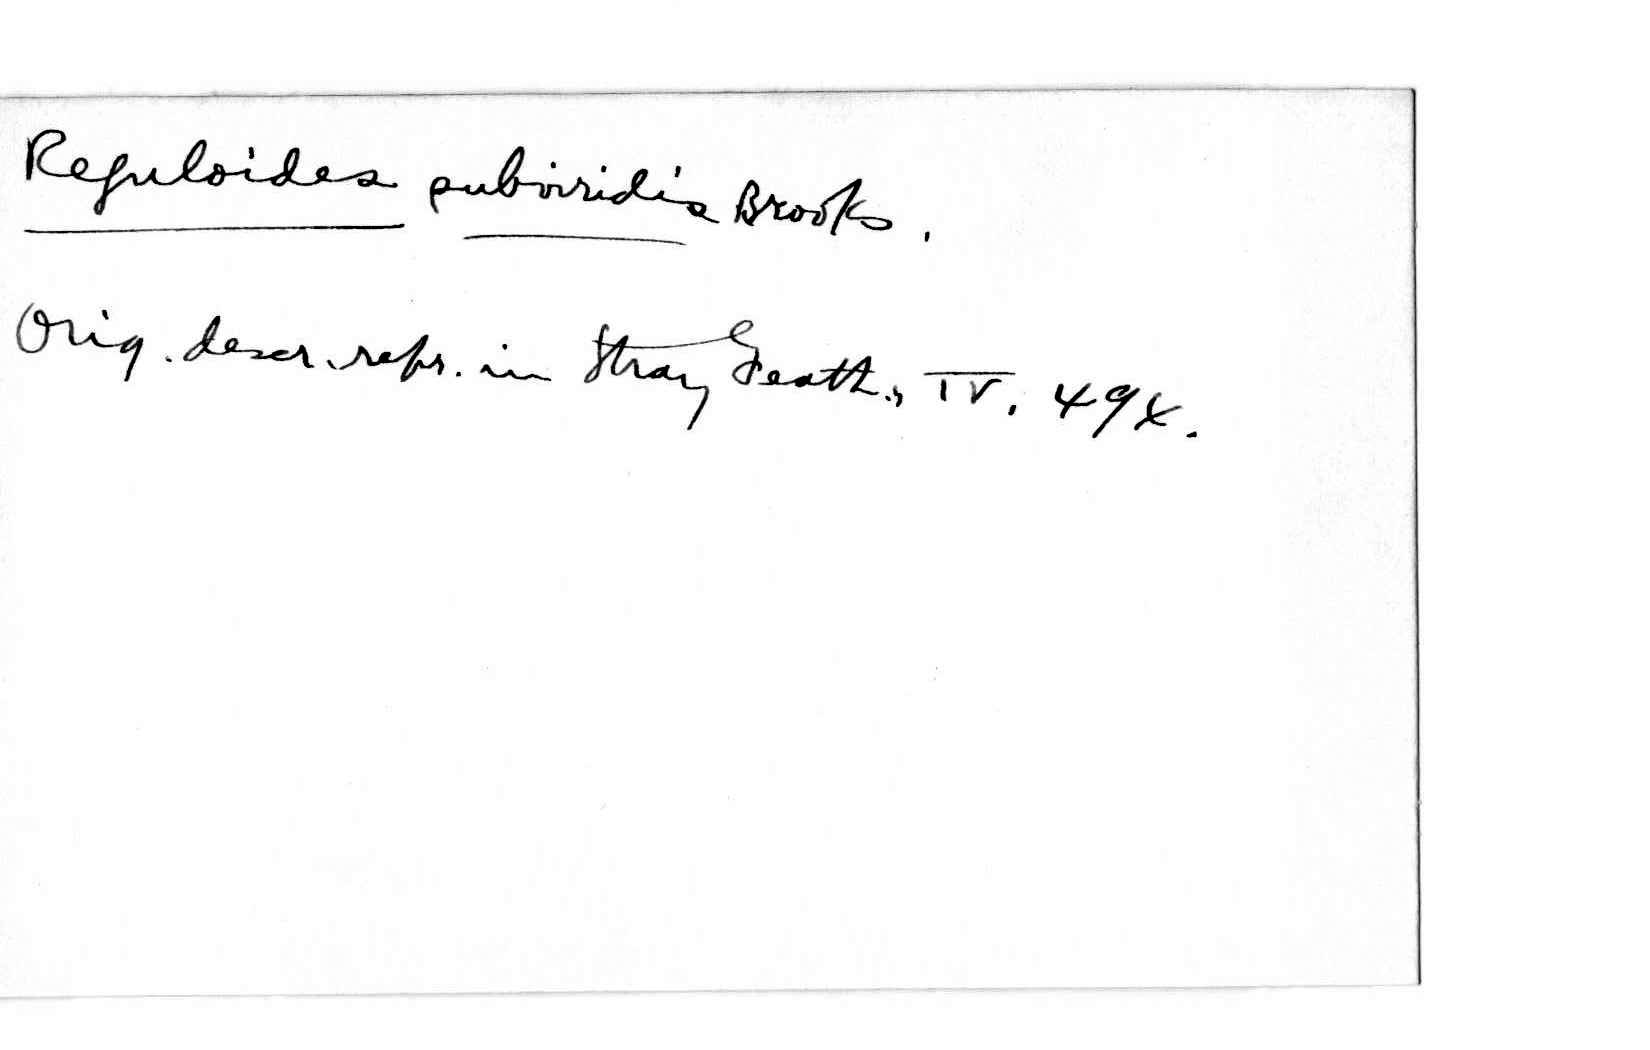 Reguloides subviridis Brooks.
Orig. descr. repr. in Stray Feath., IV. 49x.